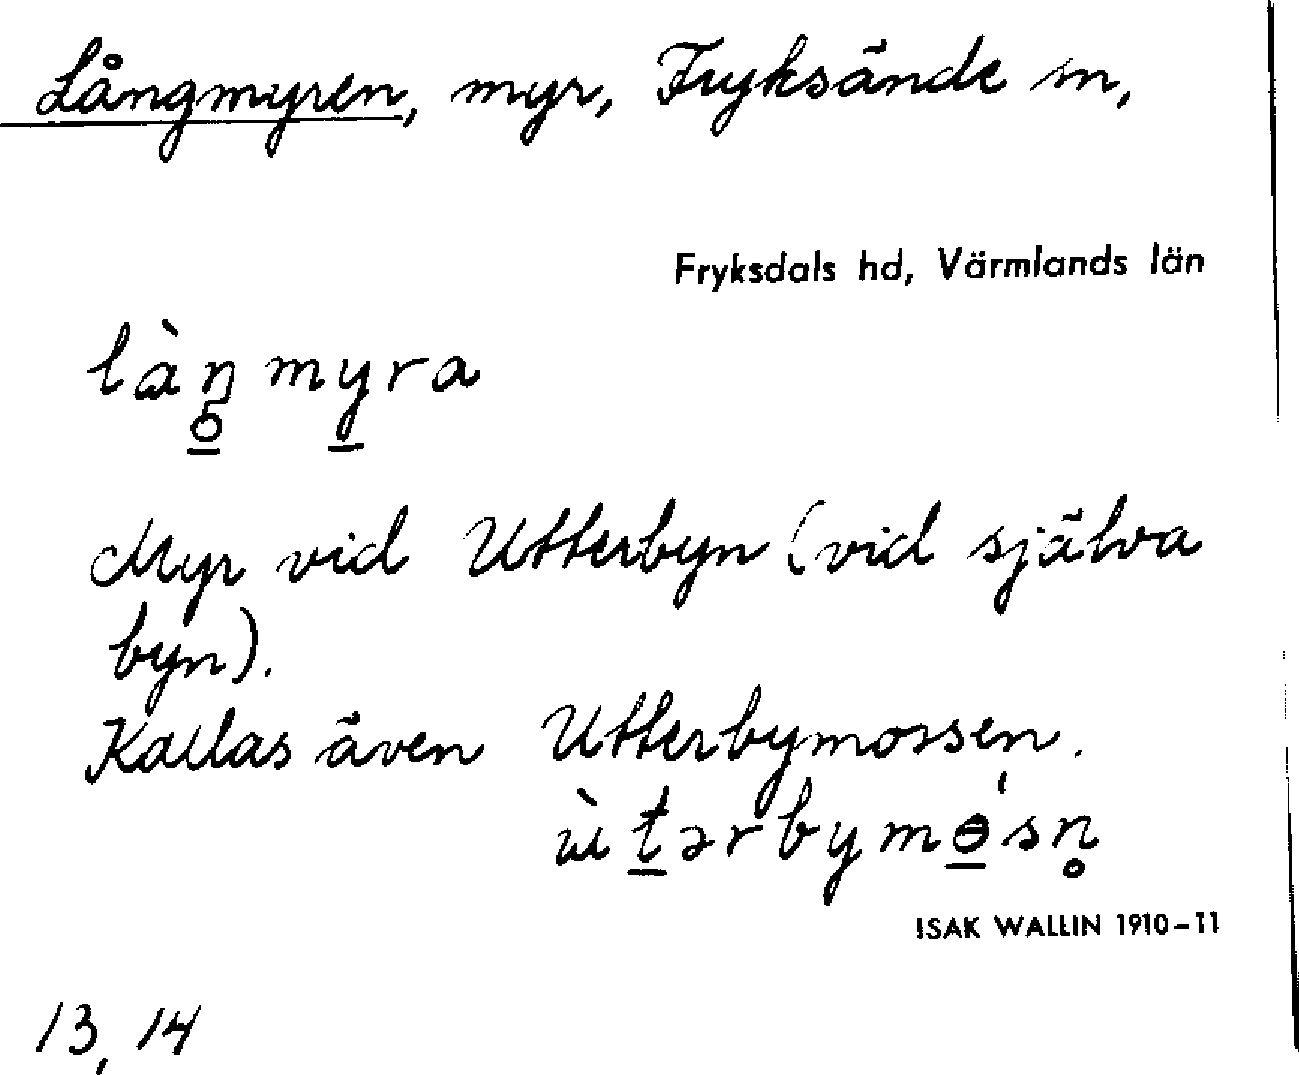 Långmyren, myr, Fryksände sn,
Fryksdals hd, Värmlands län
làŋ̥̱ my̱ra
Myr vid Utterbyn (vid själva
byn).
Kallas även Utterbymossen.
ùṯərbymɵ̱́sn̥
ISAK WALLIN 1910-11
13, 14